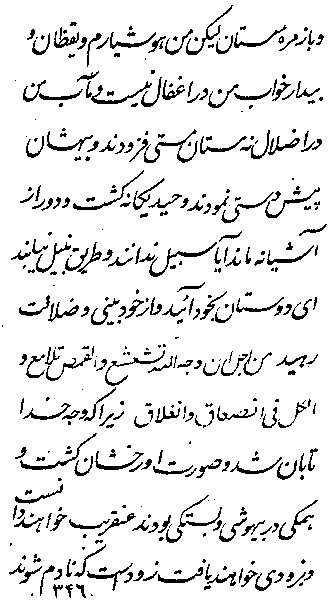 و باز مرهٔ مستان لیکن من هوشیارم و یقظان و
بیدار خواب من در اغفال نیست و مآب من
در اضلال نه مستان مستی فزودند و بیهشان
پیش دستی نمودند وحید یگانه گشت و دور از
آشیانه ماند آیا سبیل ندانند و طریق نیل نیابند
ای دوستان بخود آئید و از خودبینی و ضلالت
رهید من اجل ان وجه الله تشعشع والقمص تلامع و
الکل فی انصعاق و انغلاق زیرا که وجه خدا
تابان شد و صورت او رخشان گشت و
همگی در بیهوشی و بستگی بودند عنقریب خواهند دانست
و بزودی خواهند یافت زود است که نادم شوند
۳۴۶